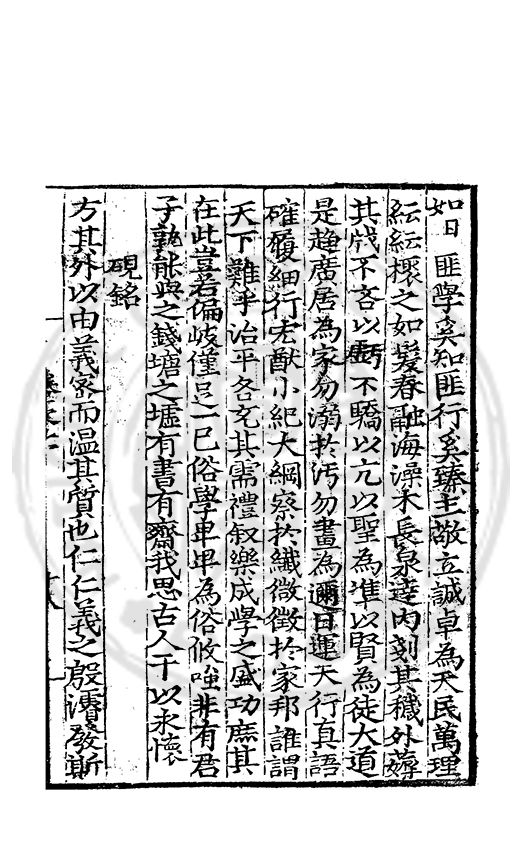 如日匪學奚知匪行奚臻主敬立誠卓為天民萬理
紜紜櫽之如髮春融海澡木長泉達內刻其穢外薅
其戕不吝以虧不驕以亢以聖為準以賢為徒大道
是趨廣居為家勿溺於汚勿畫為邇日運天行真語
確履細行宏猷小紀大綱察於纖微徵於家邦誰謂
天下難乎治平各充其需禮叙樂成學之盛功庶其
在此豈若偏岐僅足一已俗學卑卑為俗攸嗤非有君
子孰能與之錢塘之墟有書有齋我思古人于以永懷
硯銘
方其外以由義密而温其質也仁仁義之殷濡發斯